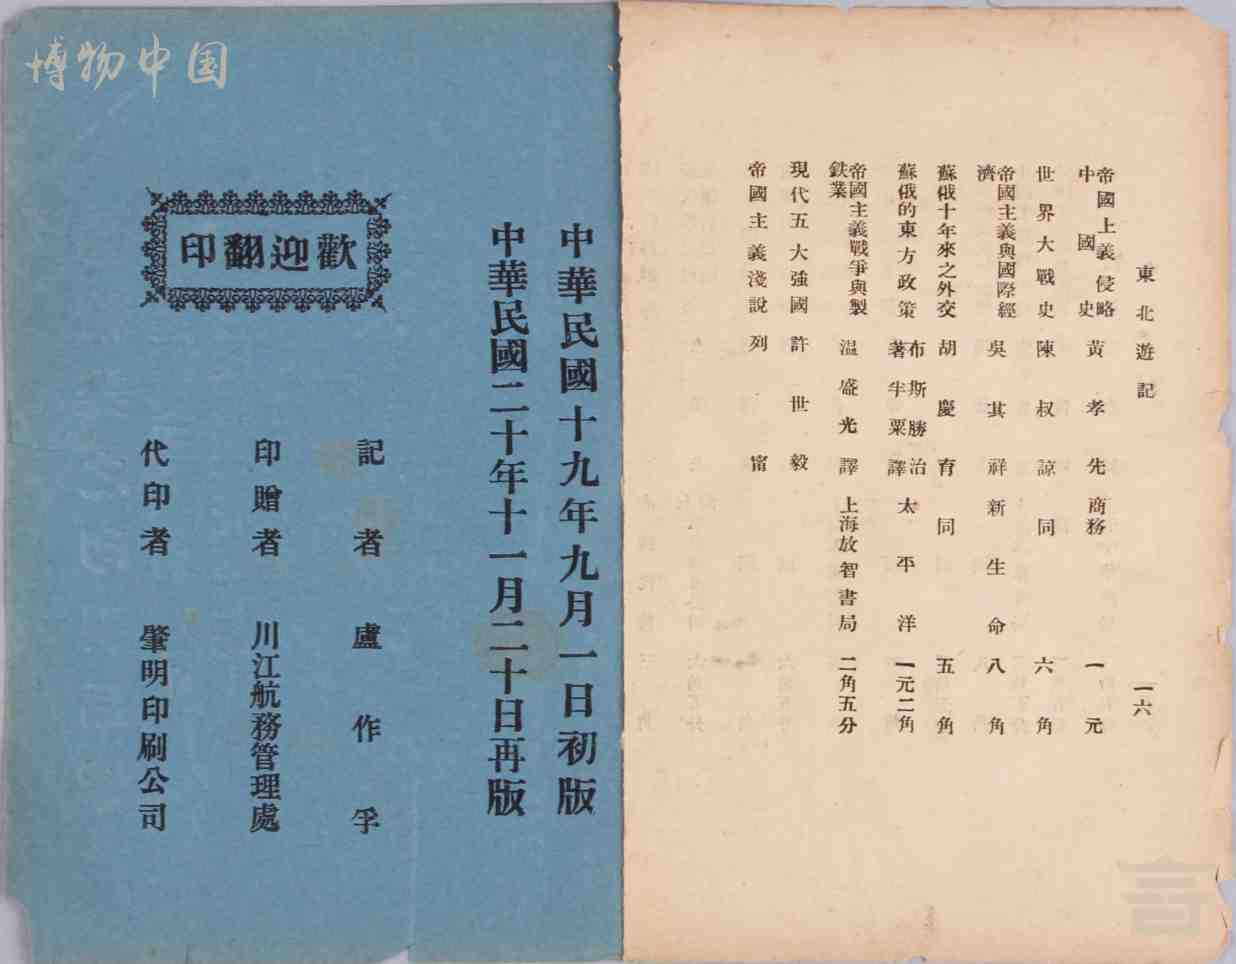 博物中国
東北遊記
一六
帝國上義侵略中國史 黃孝先 商務 一元
世界大戰史 陳叔諒 同 六角
帝國主義與國際經濟 吳其祥 新生命 八角
蘇俄十年來之外交 胡慶育 同 五角
蘇俄的東方政策 布斯勝治著半粟譯 太平洋 一元二角
帝國主義戰爭與製鉄業 温盛光譯 上海放智書局 二角五分
現代五大強國 許世毅
帝國主義淺說 列甯
中華民國十九年九月一日初版
中華民國二十年十一月二十日再版
歡迎翻印
記者 盧作孚
印贈者 川江航務管理處
代印者 肇明印刷公司